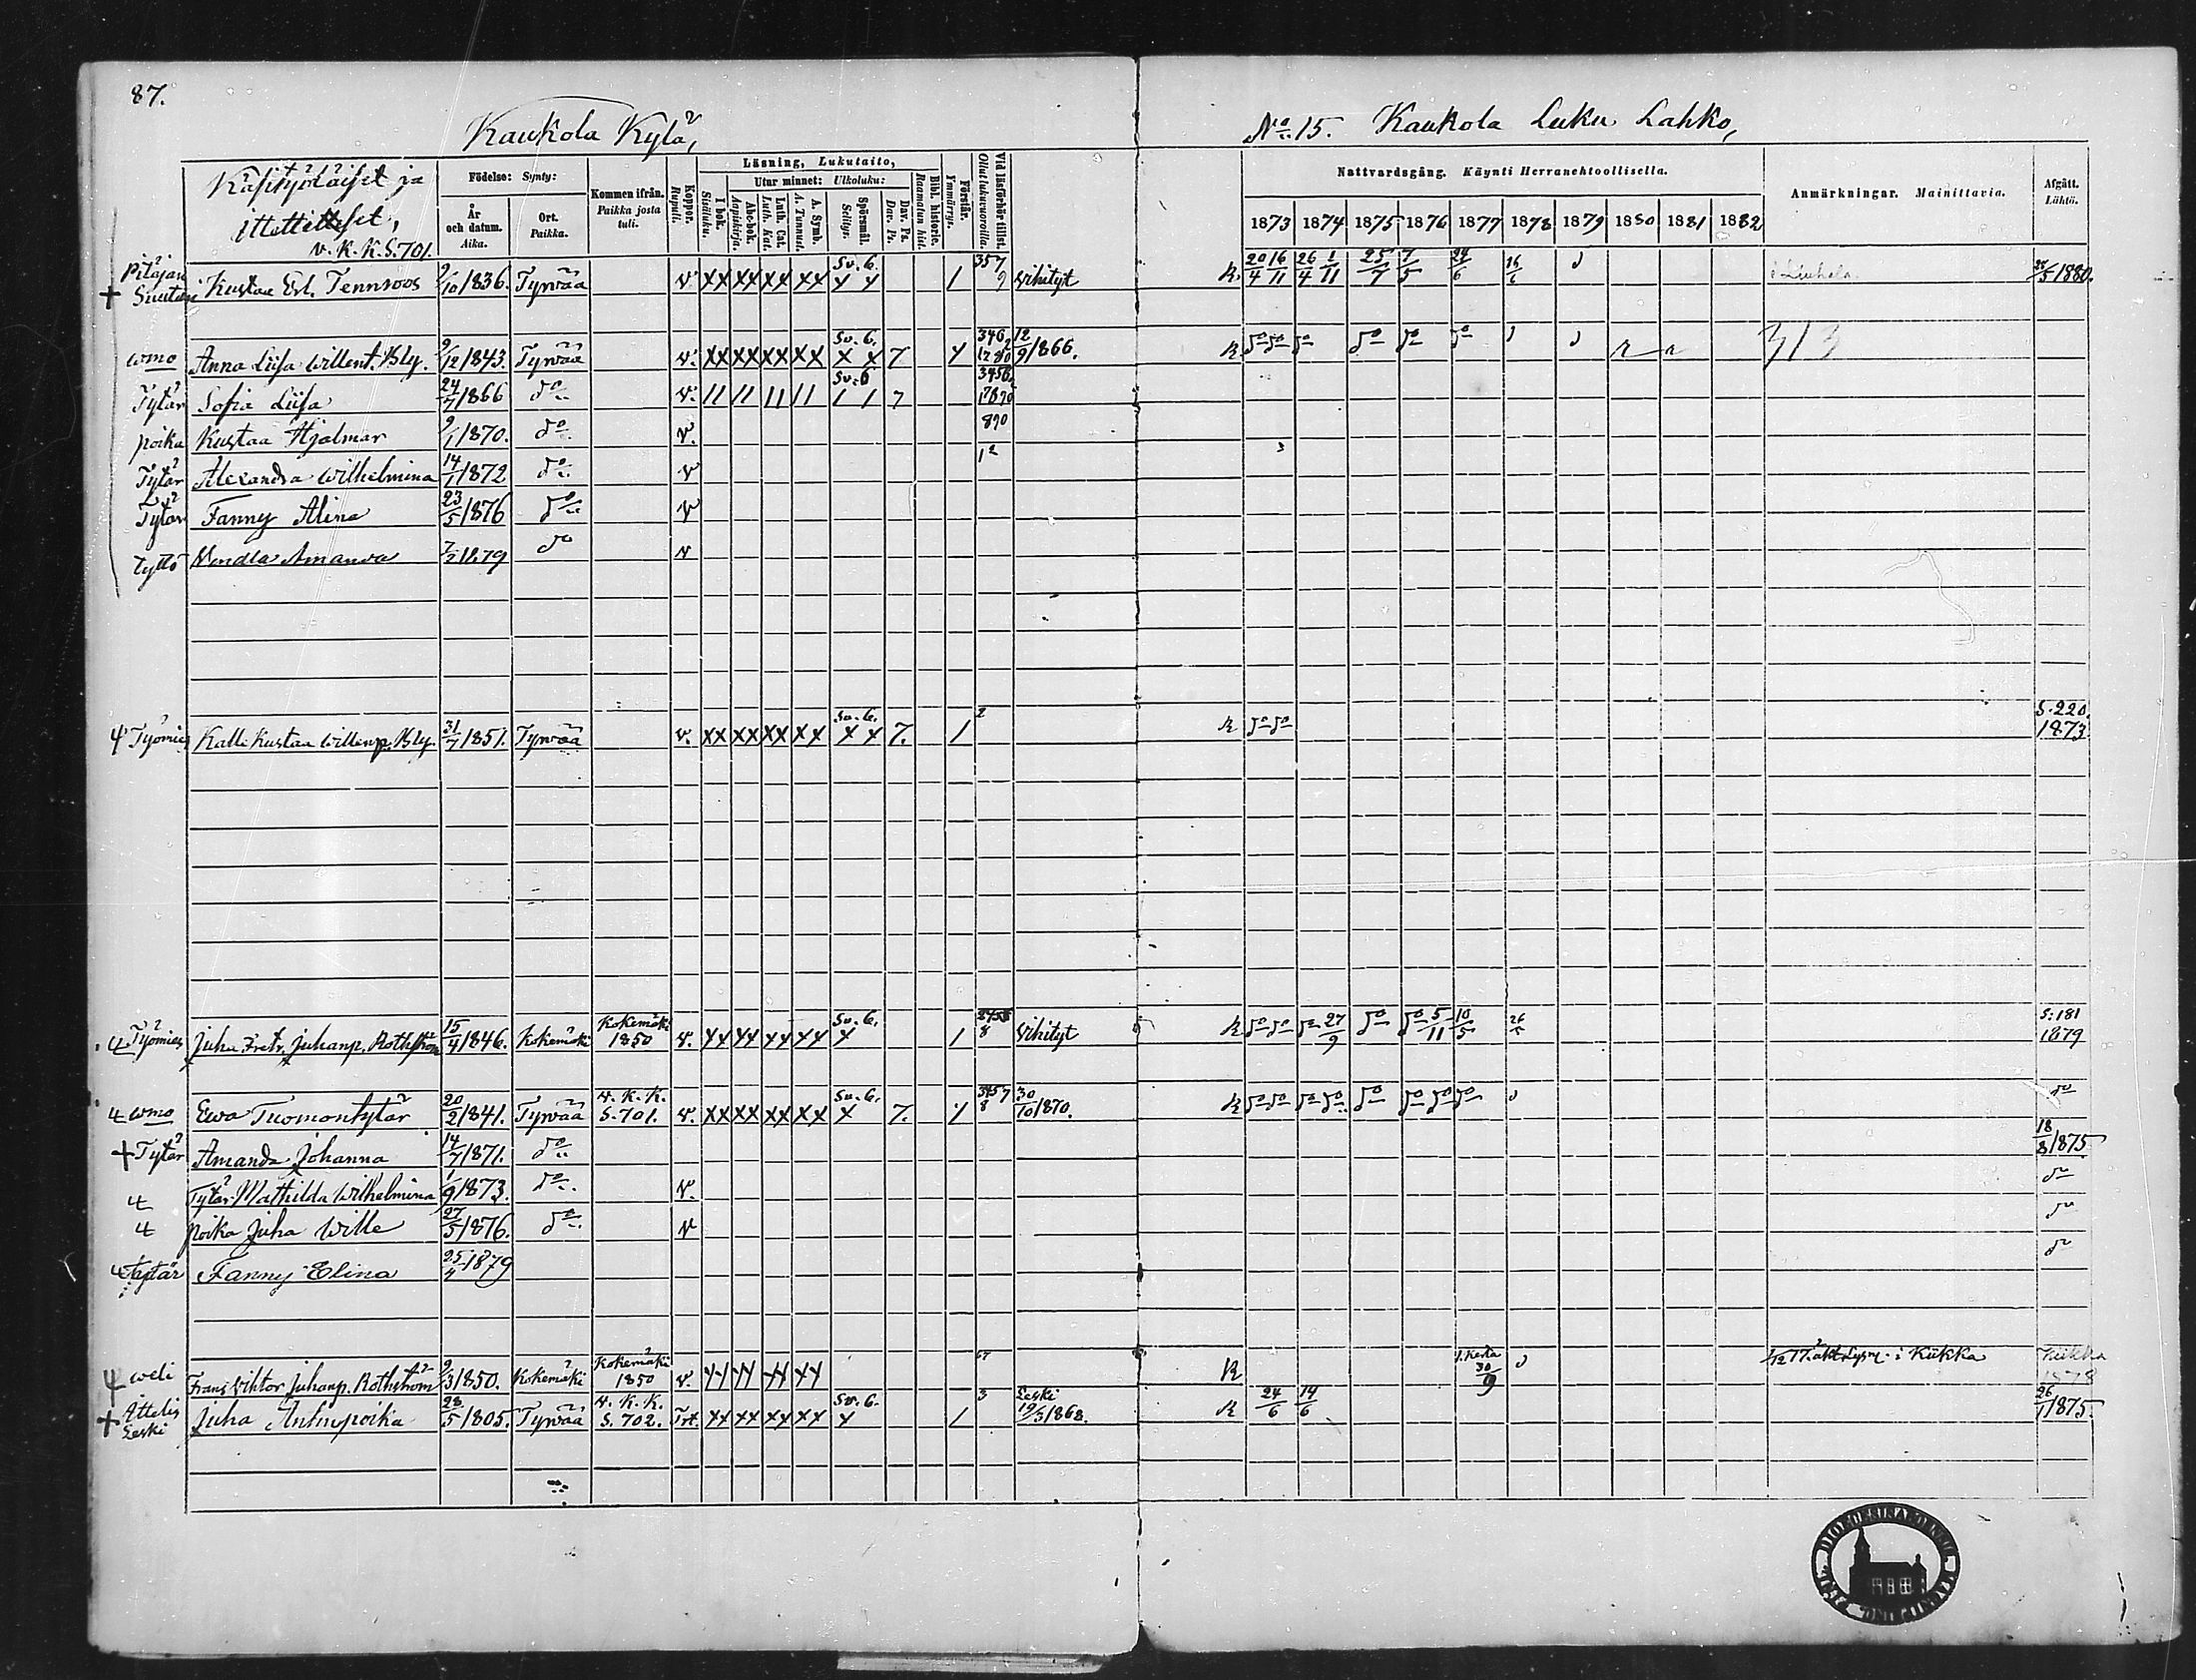 87.
Kaukola Kylä,
No 15. Kaukola Luku Lahko,
Käsityöläiset ja
ittelliset,
v. K. K. S. 701.
Födelse: Synty:
År och datum. Aika.
Ort. Paikka.
Kommen ifrån. Paikka josta tuli.
Koppor. Rupuli.
Läsning, Lukutaito,
I bok. Sisäluku.
Utur minnet: Ulkoluku:
Abc-bok. Aapiskirja.
Luth. Cat. Luth. Kat.
A. Symb. A. Tunnust.
Spörsmål. Selitys.
Dav. Ps. Dav. Ps.
Bibl. historie. Raamatun hist.
Förstår. Ymmärrys.
Vid läsförhör tillst. Ollut lukuvuoroilla.
Nattvardsgång. Käynti Herranehtoollisella.
1873 1874 1875 1876 1877 1878 1879 1880 1881 1882
Anmärkningar. Mainittavia.
Afgått. Lähtö.
Pitäjän Suutari Kustaa Erl. Tennroos 2/10 1836. Tyrvää v. XX XX XX XX Sv. 6. 357 9 Wihityt R. 20/4 16/11 26/4 1/11 25/7 7/5 24/6 /5 1880.
wmo Anna Liisa Willent. Bly. 9/12 1843. Tyrvää v. XX XX XX XX Sv. 6. X X 7 12/9 1866. R. do do do do do do r r 313
Tytär Sofia Liisa 24/7 1866 do v. Sv. 6 7
poika Kustaa Hjalmar 9/1 1870. do v. 890
Tytär Alexandra Wilhelmina 14/1 1872 do v
Tytär Fanny Alina 23/5 1876 do v
tyttö Wendla Amanda 7/2 1879 do v
Työmies Kalle Kustaa Willenp. Bly. 31/7 1851. Tyrvää v. XX XX XX XX Sv. 6. X X 7. 2 R do do S. 220. 1873.
Työmies Juha Fretr. Juhanp. Rothström 15/4 1846. Kokemäki Kokemäki 1850 v. Sv. 6. 8 Wihityt R do do do 27/9 do do 5/11 10/5 26/5 S. 181 1879
wmo Ewa Tuomontytär 20/2 1841. Tyrvää v. K. K. S. 701. v. XX XX XX XX Sv. 6. X 7. 3457 8 30/10 1870. R do do do do do do do do do
Tytär Amanda Johanna 14/7 1871. do 18/8 1875
Tytär Mathilda Wilhelmina 1/9 1873. do v. do
poika Juha Wille 27/5 1876. do v do
Tytär Fanny Elina 25/4 1879 do
weli Frans Wiktor Juhanp. Rothström 9/3 1850. Kokemäki Kokemäki 1850 v. 67 R 1. kerta 30/9 Kiikka Kiikka 1878
Ittellis Leski Juha Antinpoika 28/5 1805. Tyrvää v. K. K. S. 702. Trt. Sv. 6. 3 Leski 19/5 1868. R 24/6 14/6 26/1 1875.